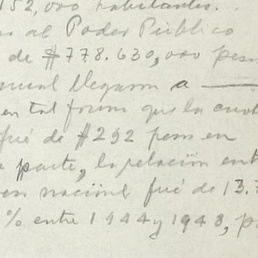 152,000 habitantes.
os al Poder Público
de $778.630,000 pesos
anual llegaron a
en tal forma que la cuota
fué de $292 pesos en
parte, la relación entre
nacional fué de 13.7
% entre 1944 y 1948, p